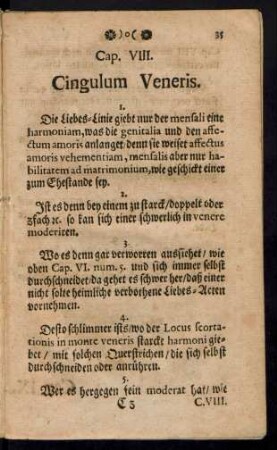 )o( 35
Cap. VIII.
Cingulum Veneris.
1.
Die Liebes-Linie giebt nur der mensali eine
harmoniam, was die genitalia und den affe-
ctum amoris anlanget/ denn sie weiset affectus
amoris vehementiam, mensalis aber nur ha-
bilitatem ad matrimonium, wie geschickt einer
zum Ehestande sey.
2.
Ist es denn bey einem zu starck/ doppelt oder
3fach ꝛc. so kan sich einer schwerlich in venere
moderiren.
3.
Wo es denn gar verworren aussiehet/ wie
oben Cap. VI. num. 5. und sich immer selbst
durchschneidet/ da gehet es schwer her/ daß einer
nicht solte heimliche verbothene Liebes-Acten
vornehmen.
4.
Desto schlimmer ists/ wo der Locus scorta-
tionis in monte veneris starckt harmoni gie-
bet/ mit solchen Querstrichen/ die sich selbst
durchschneiden oder anrühren.
5.
Wer es hergegen fein moderat hat/ wie
C 3 C.VIII.